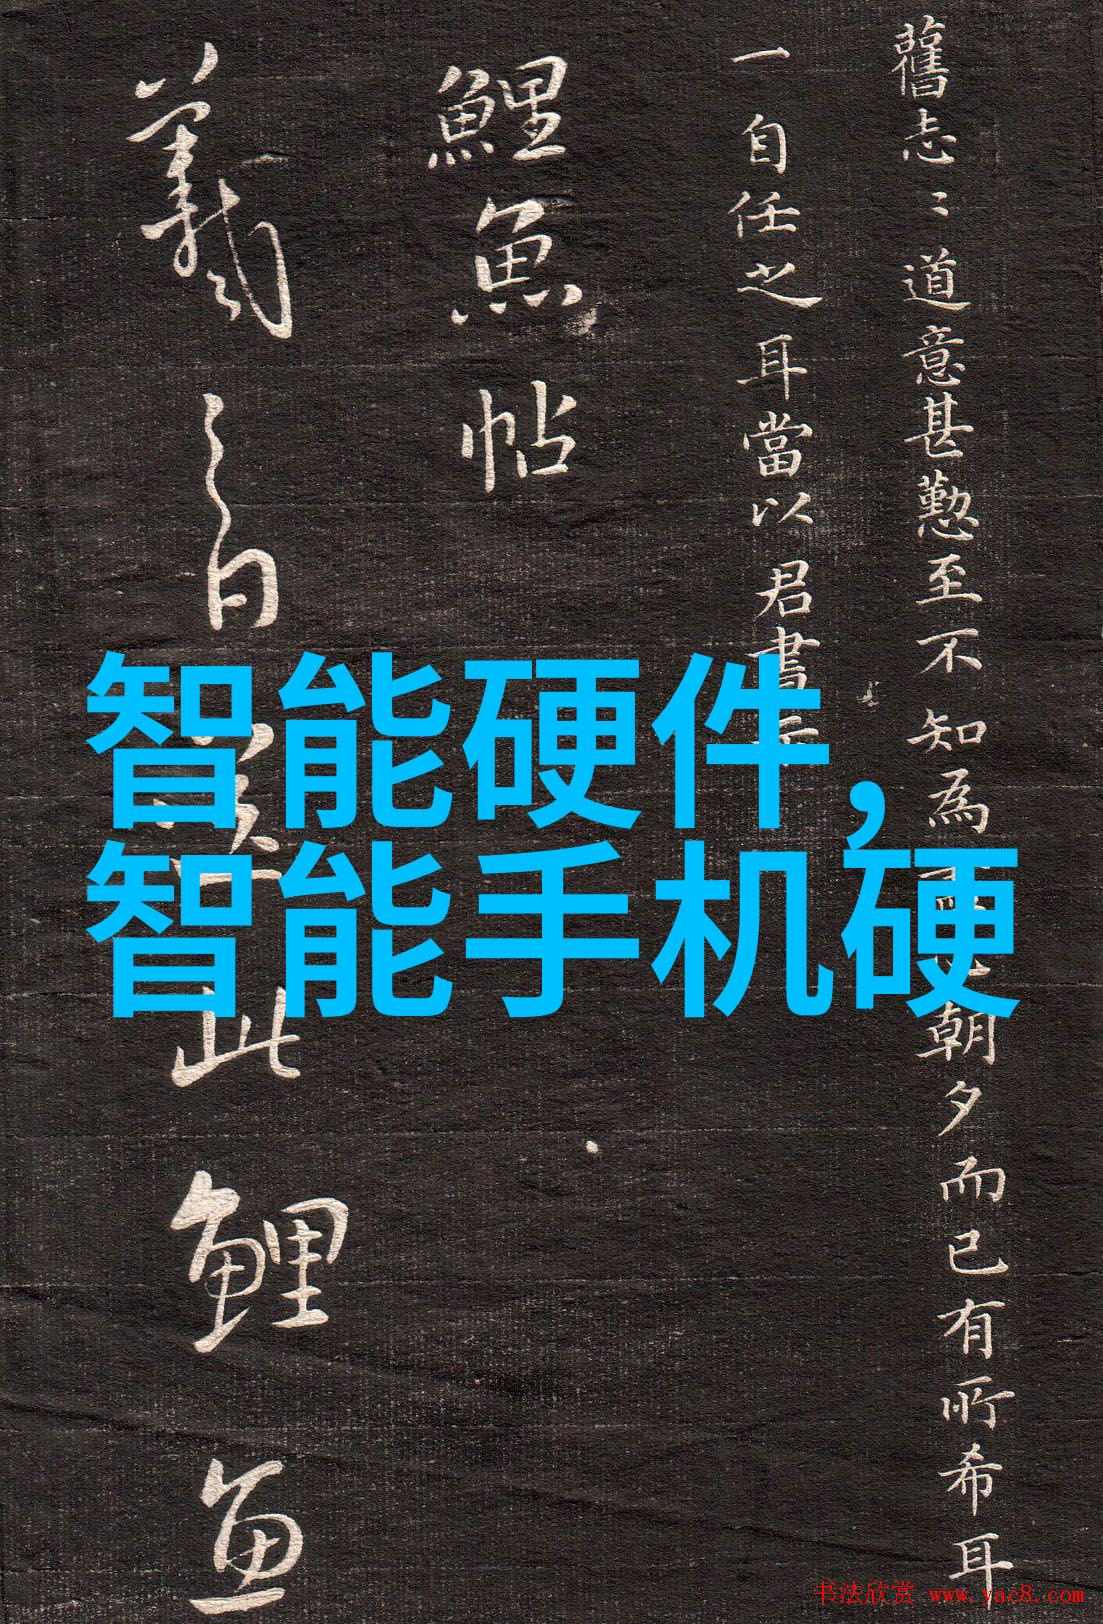 舊志〻道意甚懃至不知為
朝夕而已有所希耳
一自任之耳當以君書
鯉魚帖
羲之白
此鯉魚
智能硬件，
智能手机硬
书法欣赏 www.yac8.com